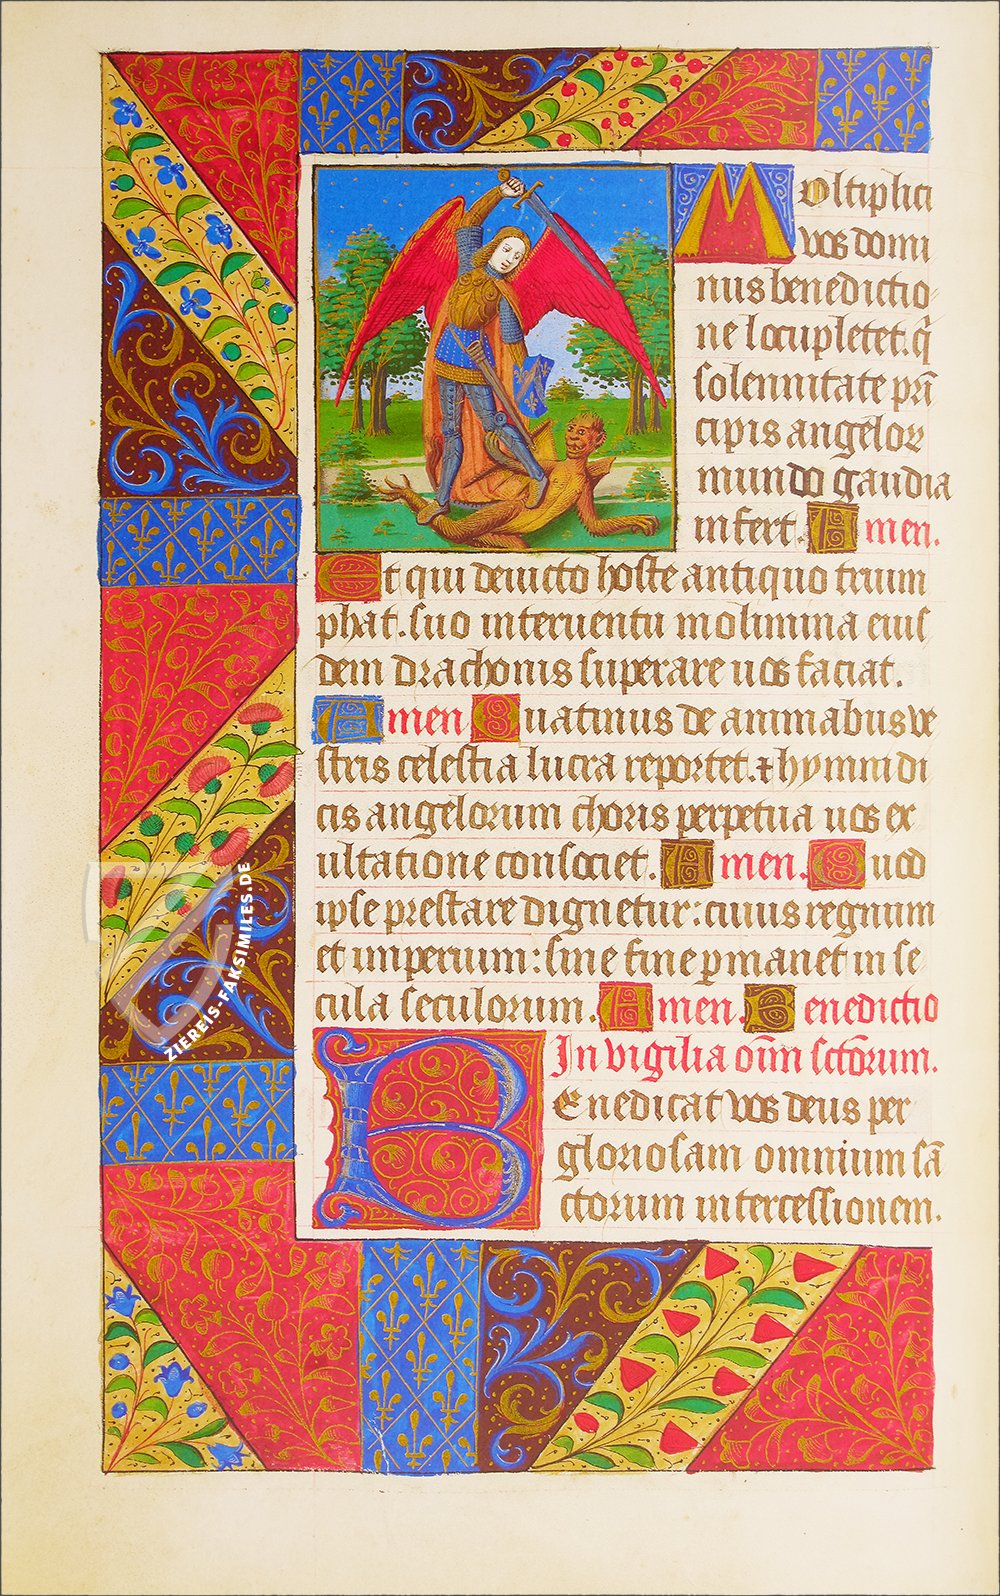 Moltiplici
vos domi
nus benedictio
ne locupletet. q̄
solennitate prā
cipis angelor
mundo gaudia
infert. Amen.
Et qui deuicto hoste antiquo trium
phat. suo interuentu molimina eius
dem drachonis superare uos faciat.
Amen Quatinus de animabus ve
stris celestia lucra reportet. ⁊ hymnidi
cis angelorum choris perpetua uos ex
ultatione consociet. Amen. Quod
ipse prestare dignetur: cuius regnum
et imperium: sine fine p̄manet in se
cula seculorum. Amen. Benedictio
In vigilia om̄n sctōrum.
Benedicat vos deus per
gloriosam omnium sā
ctorum intercessionem.
ZIEREIS-FAKSIMILES.DE